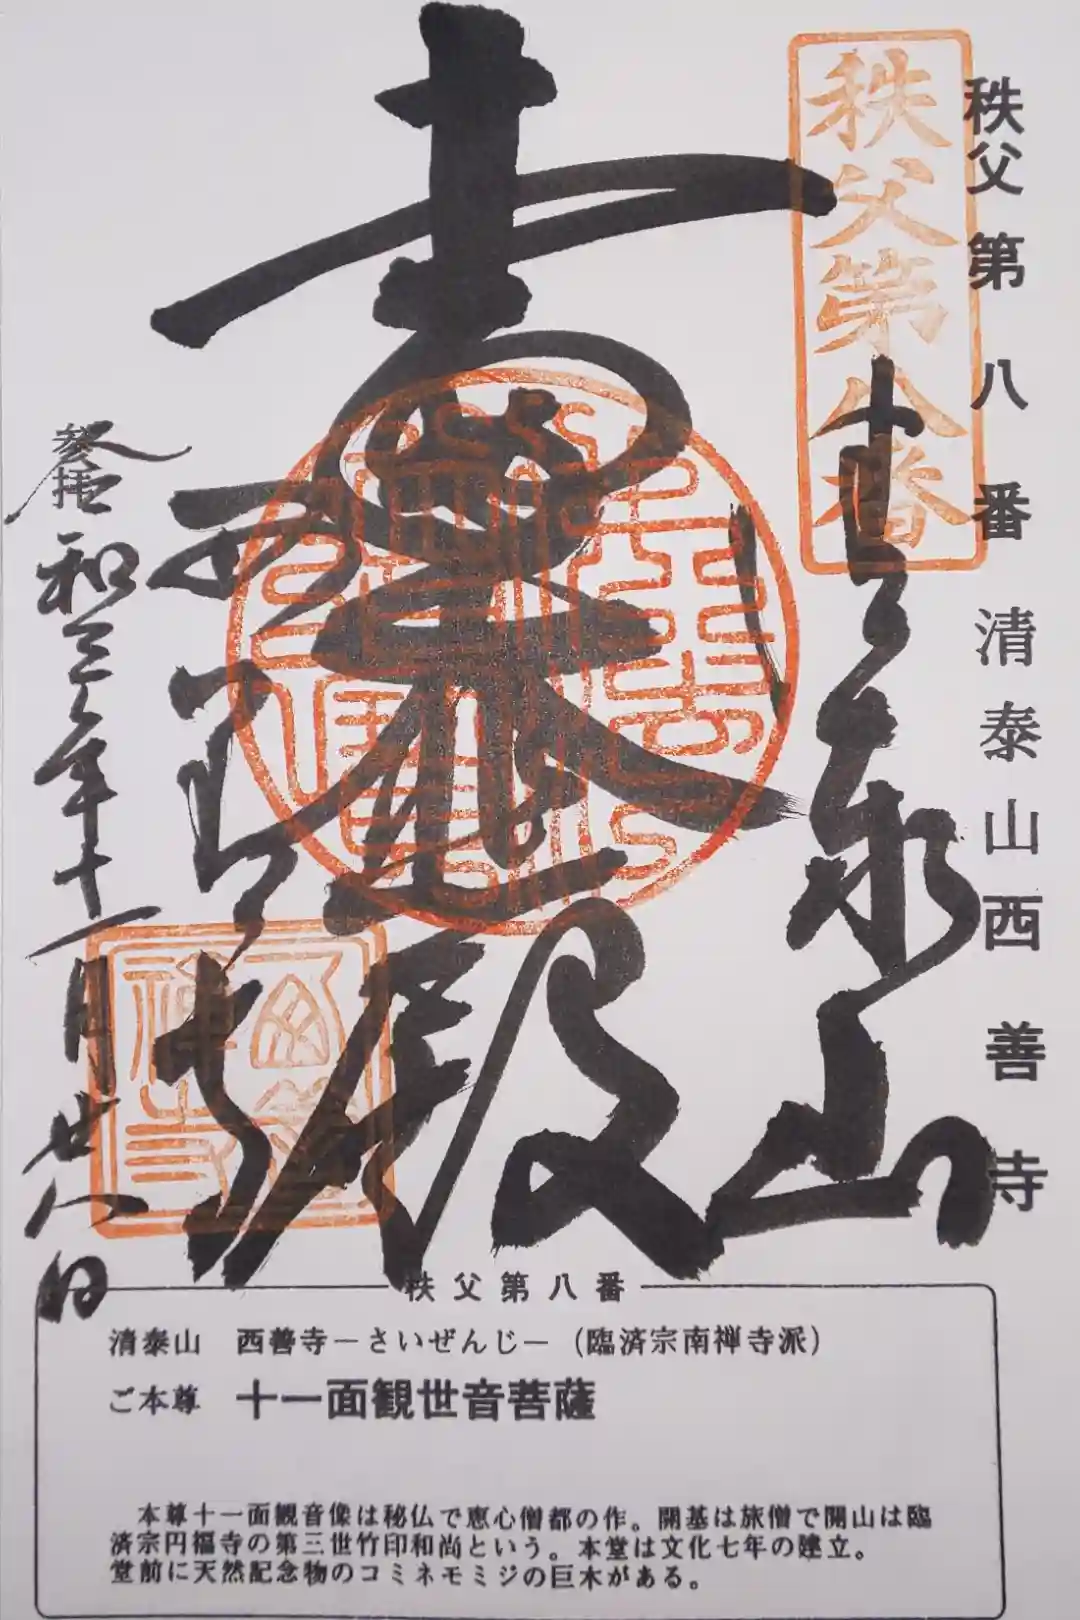 秩父第八番 清泰山西善寺
秩父第八番
泰山
殿
西善寺
参拝
令和三年十一月廿八日
秩父第八番
清泰山 西善寺－さいぜんじ－ (臨済宗南禅寺派)
ご本尊 十一面観世音菩薩
本尊十一面観音像は秘仏で恵心僧都の作。開基は旅僧で開山は臨
済宗円福寺の第三世竹印和尚という。本堂は文化七年の建立。
堂前に天然記念物のコミネモミジの巨木がある。